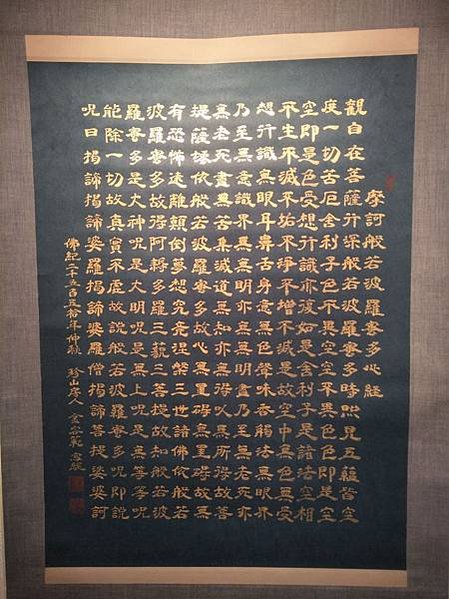 摩訶般若波羅蜜多心經
觀自在菩薩行深般若波羅蜜多時照見五蘊皆空
度一切苦厄舍利子色不異空空不異色色即是空
空即是色受想行識亦復如是舍利子是諸法空相
不生不滅不垢不淨不增不減是故空中無色無受
想行識無眼耳鼻舌身意無色聲味香觸法無眼界
乃至無意識界無無明亦無無明盡乃至無老死亦
無老死盡無苦集滅道無知亦無得以無所得故菩
提薩埵依般若波羅蜜多故心無罣礙無罣礙故無
有恐怖遠離顛倒夢想究竟涅槃三世諸佛依般若
波羅蜜多故得阿耨多羅三藐三菩提故知般若波
羅蜜多是大神呪是大明呪是無上呪是無等等呪
能除一切故真實不虛故說般若波羅蜜多呪即說
呪曰揭諦揭諦婆羅揭諦婆羅僧揭諦菩提娑婆訶
佛紀二千五百五拾年仲秋 珍山 人 金